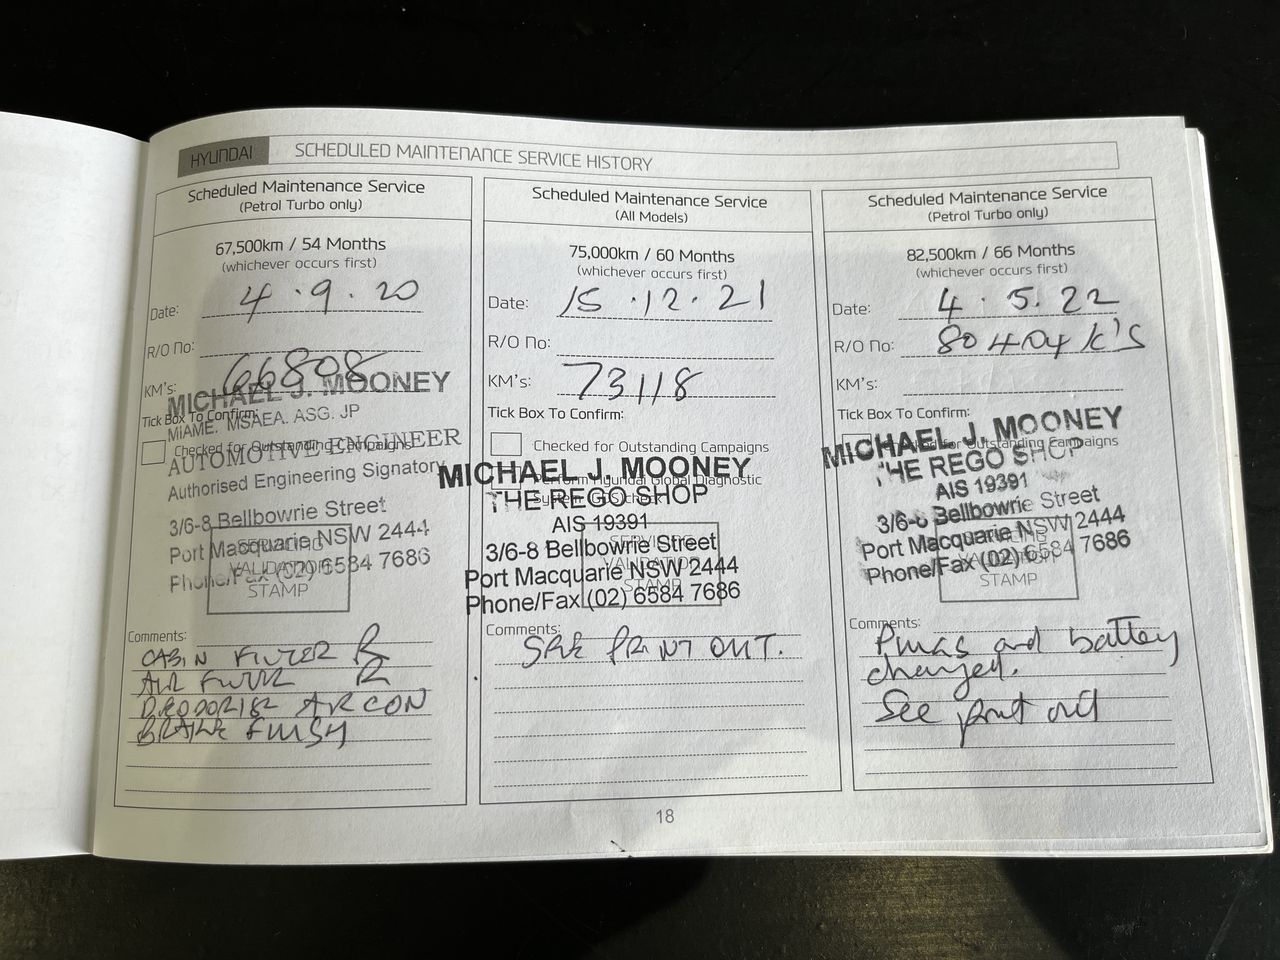 HYUNDAI SCHEDULED MAINTENANCE SERVICE HISTORY
Scheduled Maintenance Service
(Petrol Turbo only)
67,500km / 54 Months
(whichever occurs first)
Date: 4.9.20
R/O No:
KM's: 66808
MICHAEL J. MOONEY
Tick Box To Confirm:
MIAME. MSAEA. ASG. JP
Checked for Outstanding Campaigns
AUTOMOTIVE ENGINEER
Authorised Engineering Signatory
3/6-8 Bellbowrie Street
Port Macquarie NSW 2444
Phone/Fax (02) 6584 7686
SERVICING
VALIDATION
STAMP
Comments:
CABIN FILTER R
AIR FILTER R
DEODORISE AIRCON
BRAKE FLUSH
Scheduled Maintenance Service
(All Models)
75,000km / 60 Months
(whichever occurs first)
Date: 15.12.21
R/O No:
KM's: 73118
Tick Box To Confirm:
Checked for Outstanding Campaigns
MICHAEL J. MOONEY
Perform Hyundai Global Diagnostic
System (GDS) check
THE REGO SHOP
AIS 19391
3/6-8 Bellbowrie Street
Port Macquarie NSW 2444
Phone/Fax (02) 6584 7686
SERVICING
VALIDATION
STAMP
Comments:
SEE PRINT OUT.
Scheduled Maintenance Service
(Petrol Turbo only)
82,500km / 66 Months
(whichever occurs first)
Date: 4.5.22
R/O No: 80404 K'S
KM's:
Tick Box To Confirm:
MICHAEL J. MOONEY
Checked for Outstanding Campaigns
THE REGO SHOP
AIS 19391
3/6-8 Bellbowrie Street
Port Macquarie NSW 2444
Phone/Fax (02) 6584 7686
STAMP
Comments:
and battery
charged.
See print out
18